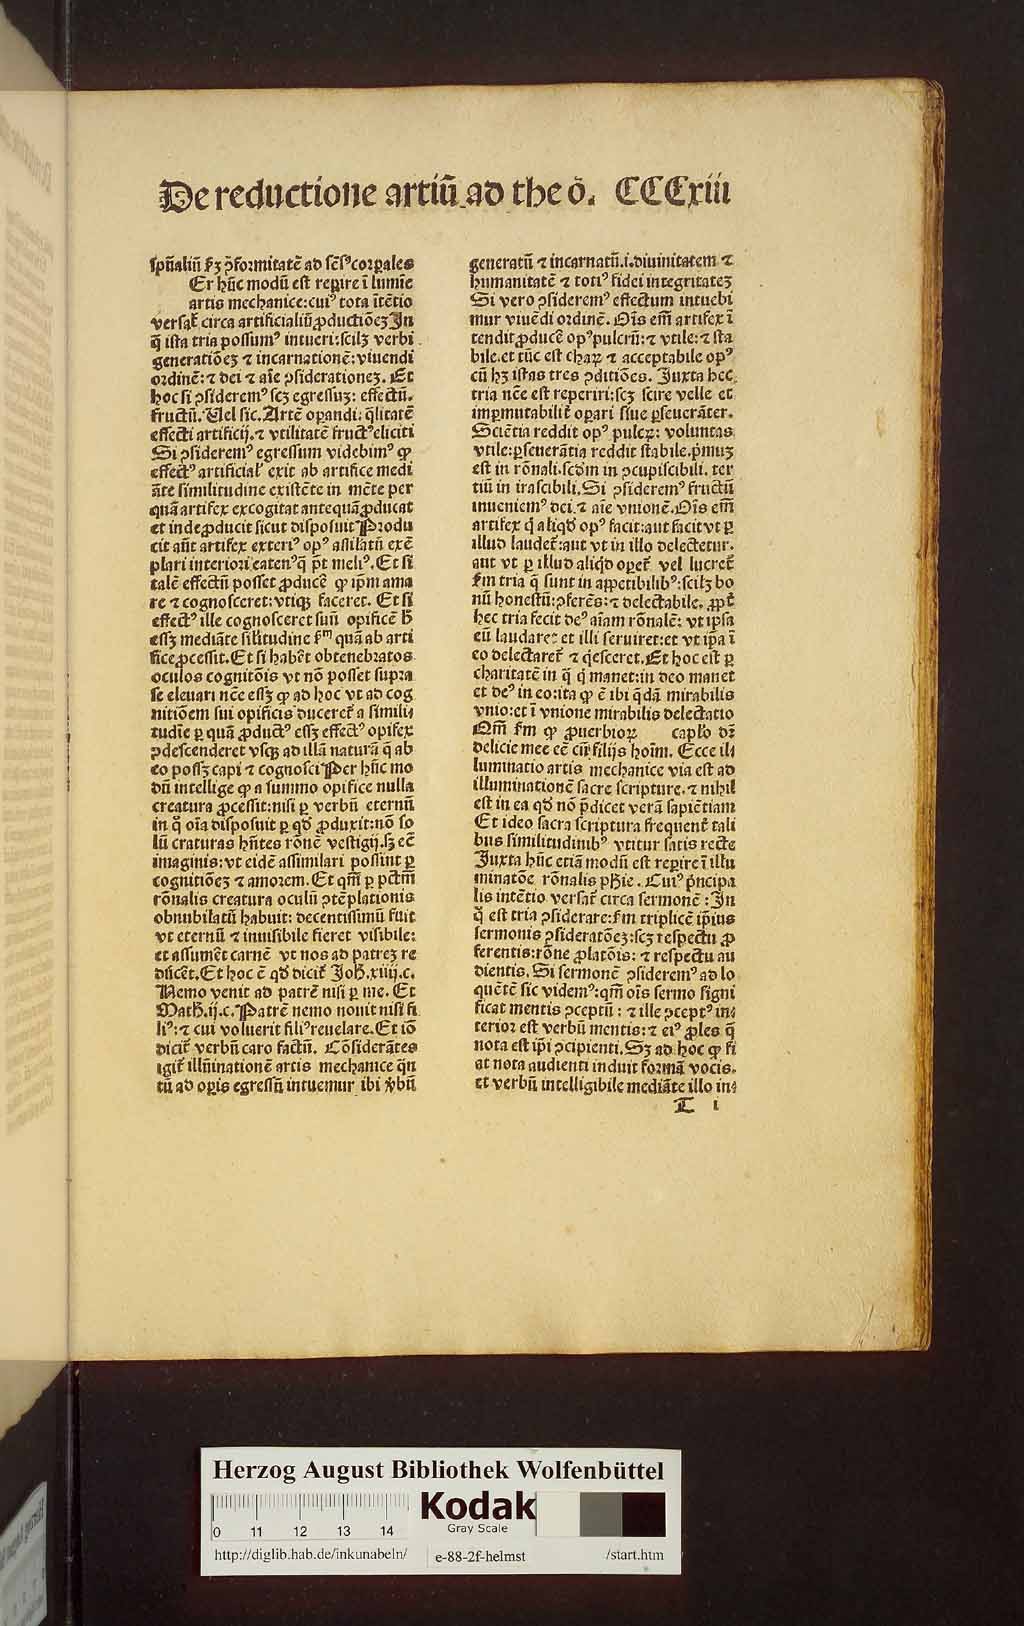 De reductione artiū ad the ō. CCCxiii
spūaliū ẜꝫ ꝯformitatē ad sēsꝰ corꝑales
Er hūc modū est reꝑire ī lumīe
artis mechanice: cuiꝰ tota ītētio
versat̄ circa artificialiū ꝓductiōeꝫ In
q̄ ista tria possumꝰ intueri: scilꝫ verbi
generatiōeꝫ ⁊ incarnationē: viuendi
ordinē: ⁊ dei ⁊ aīe ꝯsiderationeꝫ. Et
hoc si ꝯsideremꝰ scꝫ egressuꝫ: effectū.
fructū. Vel sic. Artē oꝑandi: q̄litatē
effecti artificij. ⁊ vtilitatē fructꝰ eliciti
Si ꝯsideremꝰ egressum videbimꝰ ꝙ
effectꝰ artificial̓ exit ab artifice medi
āte similitudine existēte in mēte per
quā artifex excogitat antequā ꝓducat
et inde ꝓducit sicut disposuit Produ
cit aūt artifex exteriꝰ opꝰ assilatū exē
plari interiori eatenꝰ q̄ p̄t meliꝰ. Et si
talē effectū posset ꝓducē ꝙ ip̄m ama
re ⁊ cognosceret: vtiqꝫ faceret. Et si
effectꝰ ille cognosceret suū opificē h̄
essꝫ mediāte sil̓itudine ẜm quā ab arti
fice ꝓcessit. Et si habēt obtenebratos
oculos cognitōis vt nō posset supra
se eleuari nēe essꝫ ꝙ ad hoc vt ad cog
nitiōem sui opificis duceret̄ a simili⸗
tudīe ꝑ quā ꝓductꝰ essꝫ effectꝰ opifex
ꝯdescenderet vsqꝫ ad illā naturā q̄ ab
eo possꝫ capi ⁊ cognosci Per hūc mo
dū intellige ꝙ a summo opifice nulla
creatura ꝓcessit: nisi ꝑ verbū eternū
in q̊ oīa disposuit ꝑ qd̓ ꝓduxit: nō so
lū craturas hn̄tes rōnē vestigij. sꝫ eē
imaginis: vt eidē assimilari possint ꝑ
cognitiōeꝫ ⁊ amorem. Et qm̄ ꝑ pctm̄
rōnalis creatura oculū ꝯtēplationis
obnubilatū habuit: decentissimū fuit
vt eternū ⁊ inuisibile fieret visibile:
et assumēt carnē vt nos ad patreꝫ re
dūcēt. Et hoc ē qd̓ dicit̄ Joh̄. xiiij. c.
Nemo venit ad patrē nisi ꝑ me. Et
Math̄. ij. c. Patrē nemo nouit nisi fi
liꝰ: ⁊ cui voluerit filiꝰ reuelare. Et iō
dicit̄ verbū caro factū. Cōsiderātes
igit̄ illūinationē artis mechanice q̄n
tū ad oꝑis egressū intuemur ibi v̓bū
generatū ⁊ incarnatū. i. diuinitatem ⁊
humanitatē ⁊ totiꝰ fidei integritateꝫ
Si vero ꝯsideremꝰ effectum intuebi
mur viuēdi ordinē. Oīs em̄ artifex ī
tendit ꝓducē opꝰ pulcrū: ⁊ vtile: ⁊ sta
bile. et tūc est charꝫ ⁊ acceptabile opꝰ
cū hꝫ istas tres ꝯditiōes. Juxta hec
tria nēe est reperiri: scꝫ scire velle et
imꝑmutabilit̄ oꝑari siue ꝑseuerāter.
Sciētia reddit opꝰ pulcrꝫ: voluntas
vtile: ꝑseuerātia reddit stabile. p̄muꝫ
est in rōnali. scd̓m in ꝯcupiscibili. ter
tiū in irascibili. Si ꝯsideremꝰ fructū
inueniemꝰ dei ⁊ aīe vnionē. Oīs em̄
artifex q̄ aliqd̓ opꝰ facit: aut facit vt ꝑ
illud laudet̄: aut vt in illo delectetur.
aut vt ꝑ illud aliqd̓ oꝑet̄ vel lucret̄
ẜm tria q̄ sunt in apꝑetibilibꝰ: scilꝫ bo
nū honestū: ꝯferēs: ⁊ delectabile. ꝓpt̄
hec tria fecit deꝰ aīam rōnalē: vt ipsa
eū laudaret et illi seruiret: et vt ip̄a ī
eo delectaret̄ ⁊ q̓esceret. Et hoc est ꝑ
charitatē in q̄ q̓ manet: in deo manet
et deꝰ in eo: ita ꝙ ē ibi q̄dā mirabilis
vnio: et ī vnione mirabilis delectatio
Qm̄ ẜm ꝙ ꝓuerbioꝝ capl̓o dr̄
delicie mee eē cū filijs hoīm. Ecce il⸗
luminatio artis mechanice via est ad
illuminationē sacre scripture. ⁊ nihil
est in ea qd̓ nō p̄dicet verā sapiētiam
Et ideo sacra scriptura frequent̄ tali
bus similitudinibꝰ vtitur satis recte
Juxta hūc etiā modū est reꝑire ī illu
minatōe rōnalis ph̄ie. Cuiꝰ p̓ncipa
lis intētio versat̄ circa sermonē: In
q̊ est tria ꝯsiderare: ẜm triplicē ip̄ius
sermonis ꝯsideratōeꝫ: scꝫ respectu ꝓ
ferentis: rōne ꝓlatōis: ⁊ respectu au
dientis. Si sermonē ꝯsideremꝰ ad lo
quētē sic videmꝰ: qm̄ oīs sermo signi
ficat mentis ꝯceptū: ⁊ ille ꝯceptꝰ in⸗
terior est verbū mentis: ⁊ eiꝰ ꝓles q̄
nota est ip̄i ꝯcipienti. Sꝫ ad hoc ꝙ fi
at nota audienti induit formā vocis.
et verbū intelligibile mediāte illo in⸗
T i
Herzog August Bibliothek Wolfenbüttel
0 11 12 13 14
Kodak
Gray Scale
http://diglib.hab.de/inkunabeln/ e-88-2f-helmst /start.htm